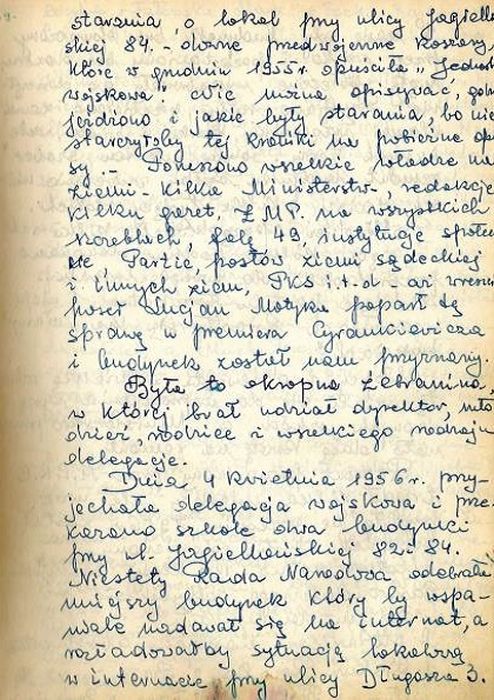 starania o lokal przy ulicy Jagielloń
skiej 84. - dawne przedwojenne koszary,
które w grudniu 1955 r. opuściła „Jednost
wojskowa". Nie można opisywać, gdzie
jeżdżono i jakie były starania, bo nie
starczyłoby tej kroniki na pobieżne opi
sy. - Poruszono wszelkie władze na
ziemi - kilka Ministerstw, redakcje
kilku gazet, ZMP. na wszystkich
szczeblach, falę 49, instytucje społecz
ne, Partię, posłów ziemi sądeckiej
i innych ziem, PKS i.t.d. - aż wreszc
poseł Lucjan Motyka poparł tę
sprawę u premiera Cyrankiewicza
i budynek został nam przyznany.
Była to okropna żebranina,
w której brał udział dyrektor, mło
dzież, rodzice i wszelkiego rodzaju
delegacje.
Dnia 4 kwietnia 1956 r. przy-
jechała delegacja wojskowa i prze
kazano szkole dwa budynki
przy ul. Jagiellońskiej 82 i 84.
Niestety Rada Narodowa odebrała
mniejszy budynek który by wspa-
niale nadawał się na internat, a
rozładowałby sytuację lokalową
w internacie przy ulicy Długosza 3.